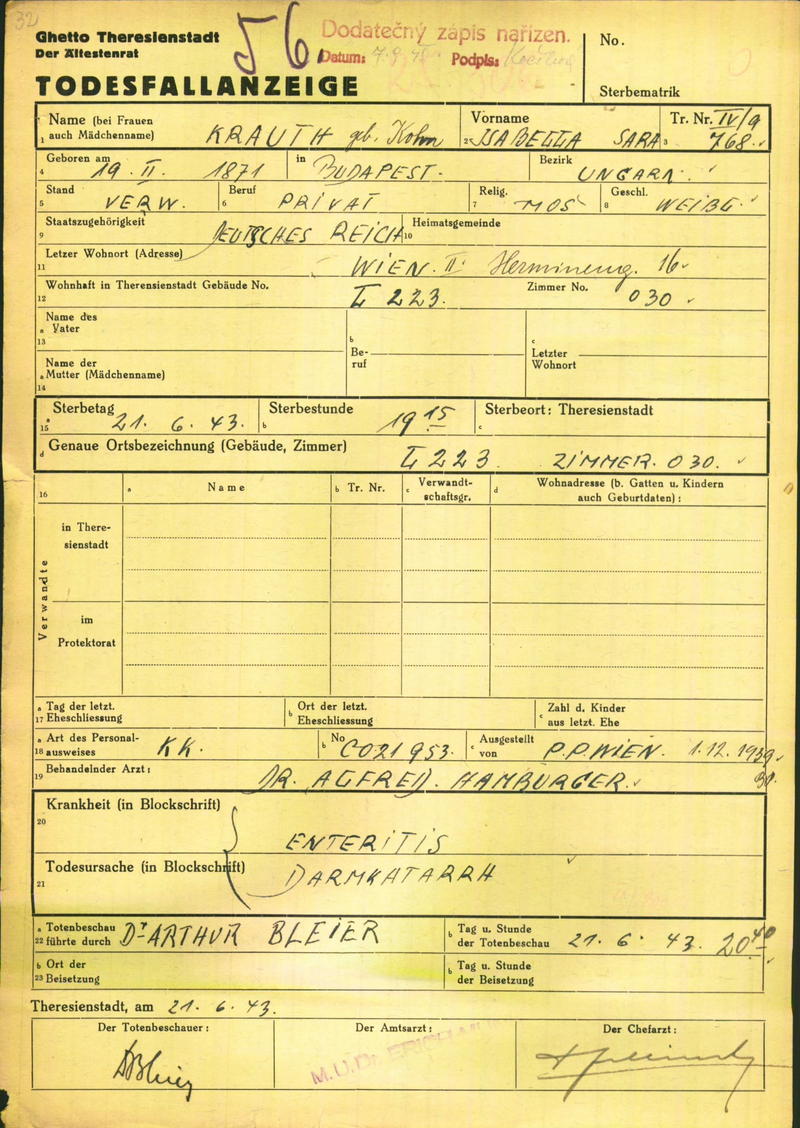 32
Ghetto Theresienstadt
Der Ältestenrat
TODESFALLANZEIGE
56
Dodatečný zápis nařízen.
Datum: 7.9.48 Podpis:
No.
Sterbematrik
Name (bei Frauen auch Mädchenname) KRAUTH geb. Kohn
Vorname ISABELLA SARA
Tr. Nr. IV/9 768.
Geboren am 19. II. 1871 in BUDAPEST. Bezirk UNGARN.
Stand VERW. Beruf PRIVAT Relig. MOS Geschl. WEIBL.
Staatszugehörigkeit DEUTSCHES REICH Heimatsgemeinde
Letzer Wohnort (Adresse) WIEN. II. Hermineng. 16
Wohnhaft in Theresienstadt Gebäude No. L 223. Zimmer No. 030
Name des Vater
Be-ruf
Letzter Wohnort
Name der Mutter (Mädchenname)
Sterbetag 21. 6. 43. Sterbestunde 19 15 Sterbeort: Theresienstadt
Genaue Ortsbezeichnung (Gebäude, Zimmer) L 223 ZIMMER. 030.
16 a Name b Tr. Nr. c Verwandt-schaftsgr. d Wohnadresse (b. Gatten u. Kindern auch Geburtdaten):
Verwandte
in There-sienstadt
im Protektorat
17 a Tag der letzt. Eheschliessung b Ort der letzt. Eheschliessung c Zahl d. Kinder aus letzt. Ehe
18 a Art des Personal-ausweises KK. b No C021953. c Ausgestellt von P.P. WIEN. 1.12.1939.
19 Behandelnder Arzt: DR. ALFRED. HAMBURGER.
20 Krankheit (in Blockschrift) ENTERITIS
21 Todesursache (in Blockschrift) DARMKATARRH
22 a Totenbeschau führte durch Dr ARTHUR BLEIER b Tag u. Stunde der Totenbeschau 21. 6. 43. 20 40
23 b Ort der Beisetzung b Tag u. Stunde der Beisetzung
Theresienstadt, am 21. 6. 43.
Der Totenbeschauer: Der Amtsarzt: Der Chefarzt:
M.U.Dr. ERICH